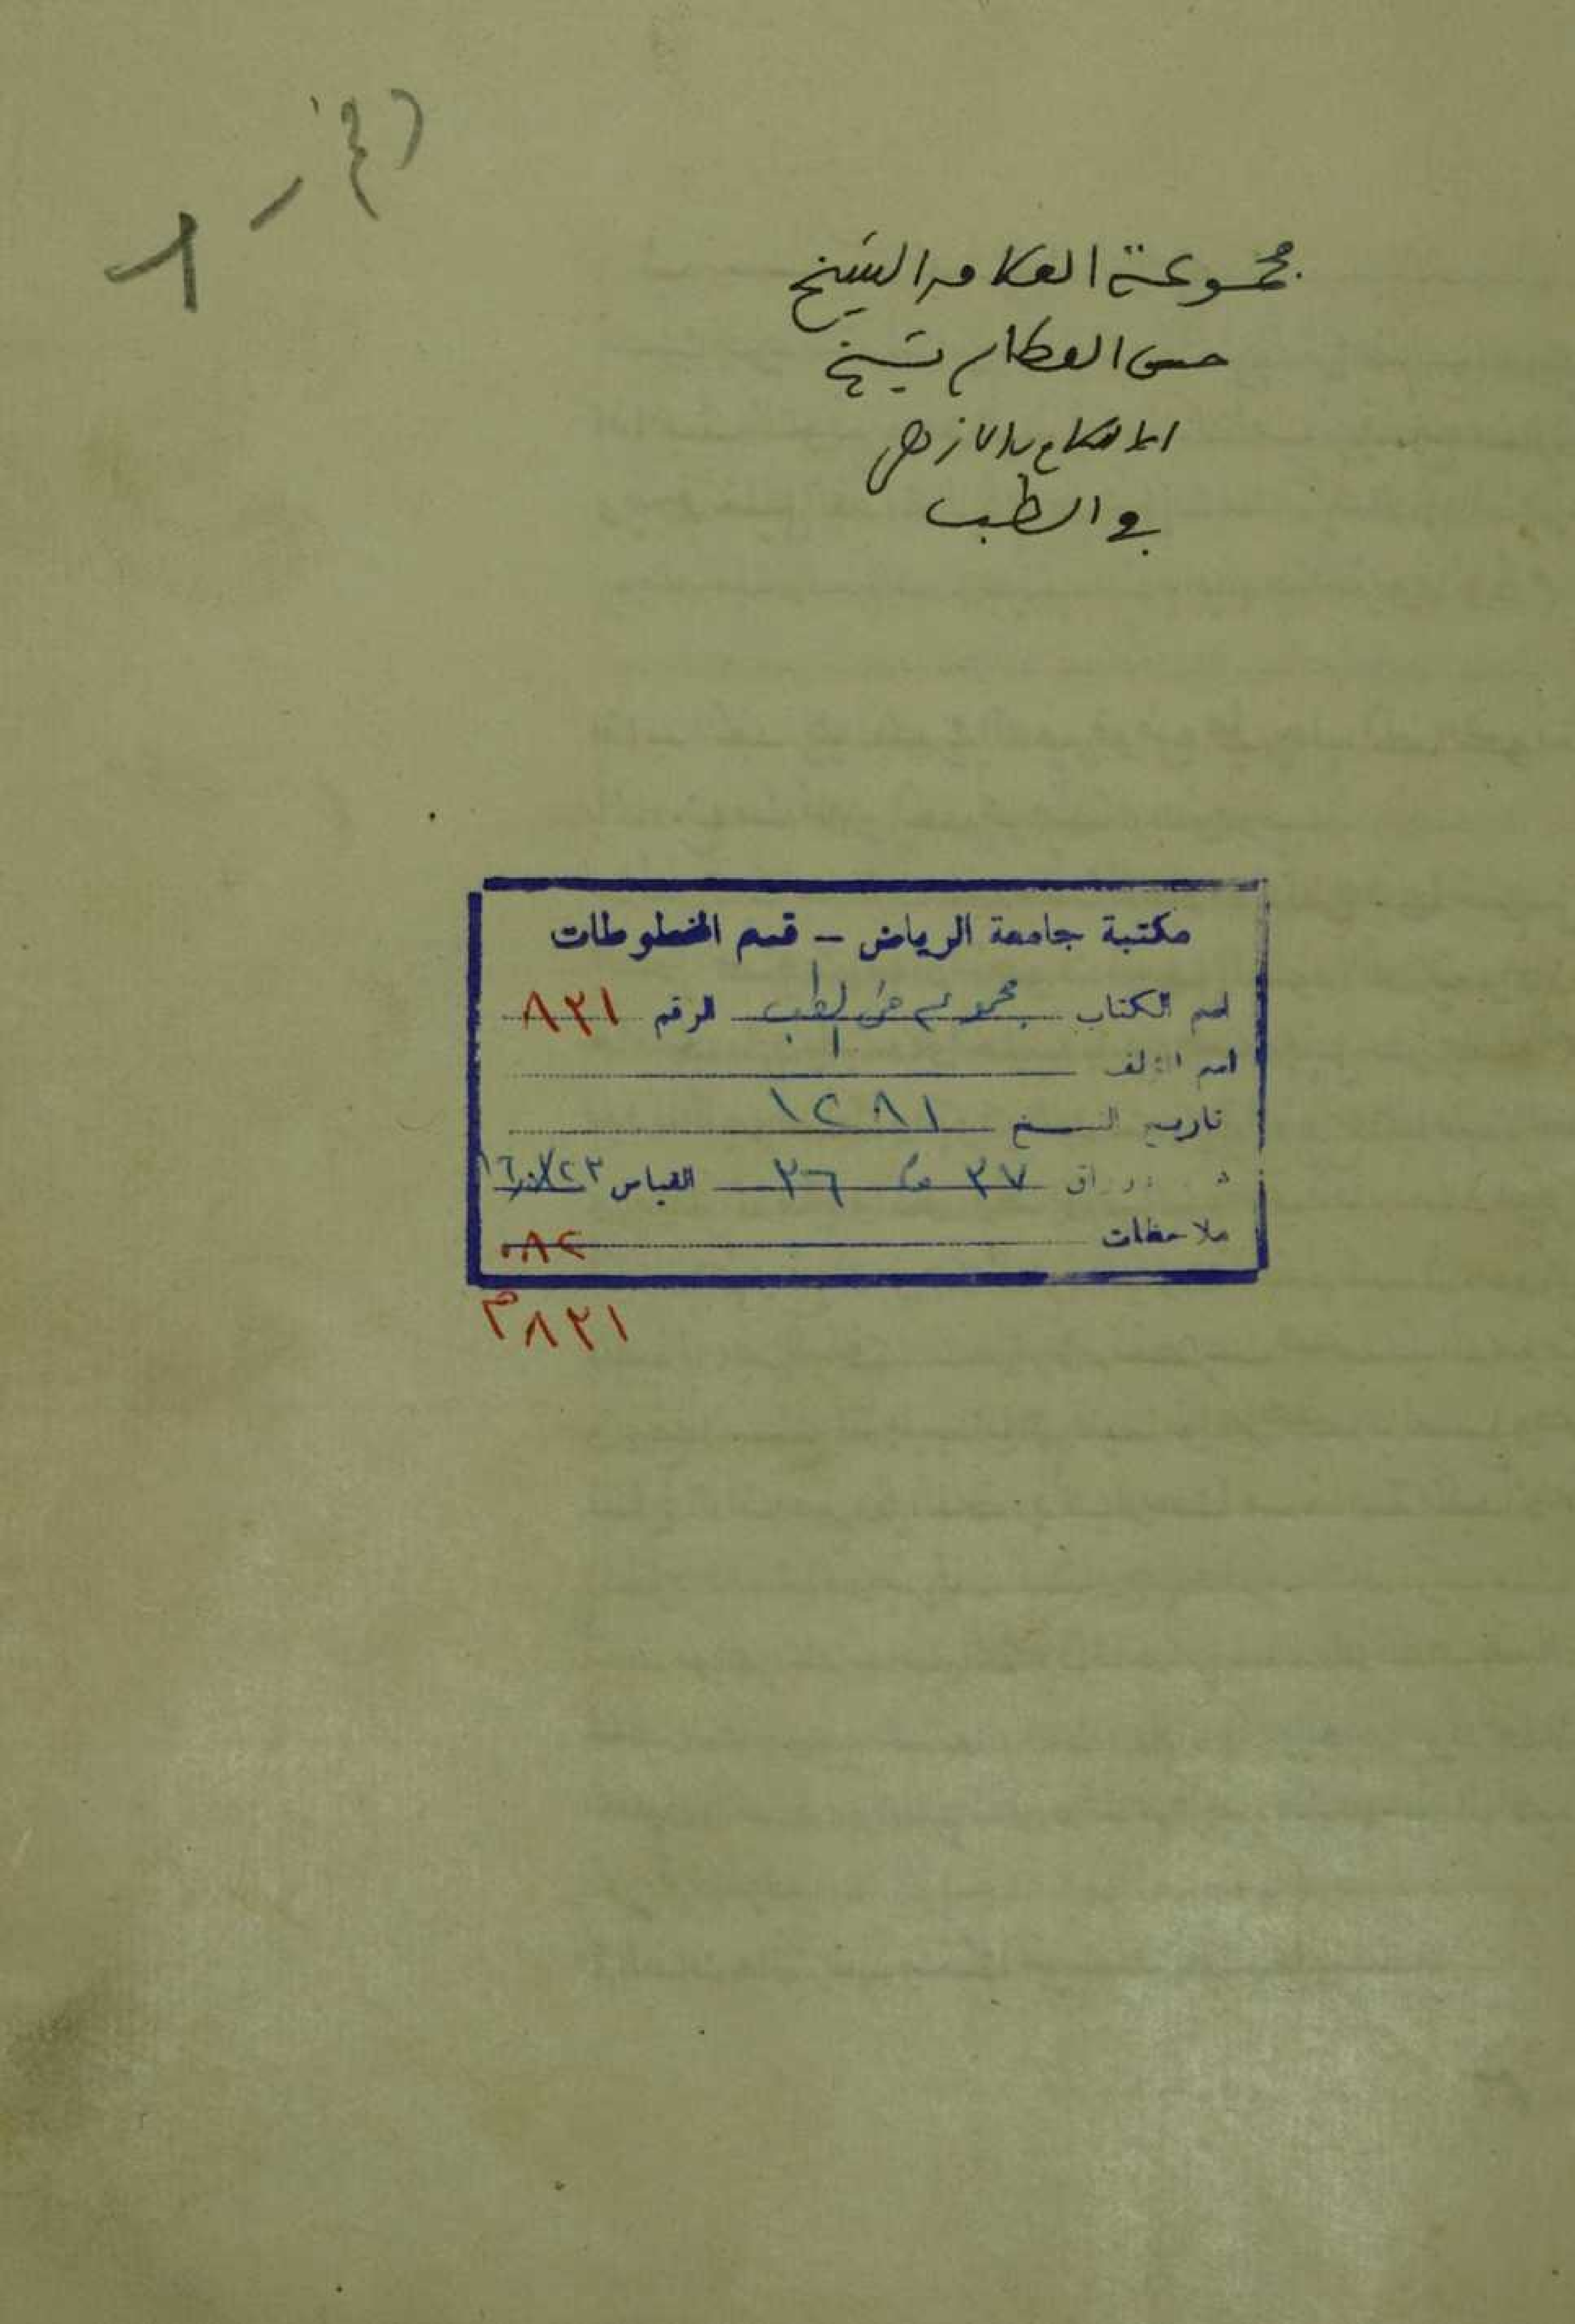 مجموعة العلامه الشيخ
حسن العطار شيخ
الاسلام بالازهر
في الطب
مكتبة جامعة الرياض - قسم المخطوطات
اسم الكتاب مجموع في الطب الرقم ٨٣١
اسم المؤلف
تاريخ النسخ ١٢٨١
٣٧ ٢٦ القياس
ملاحظات ٠٨٢
٨٣١ م